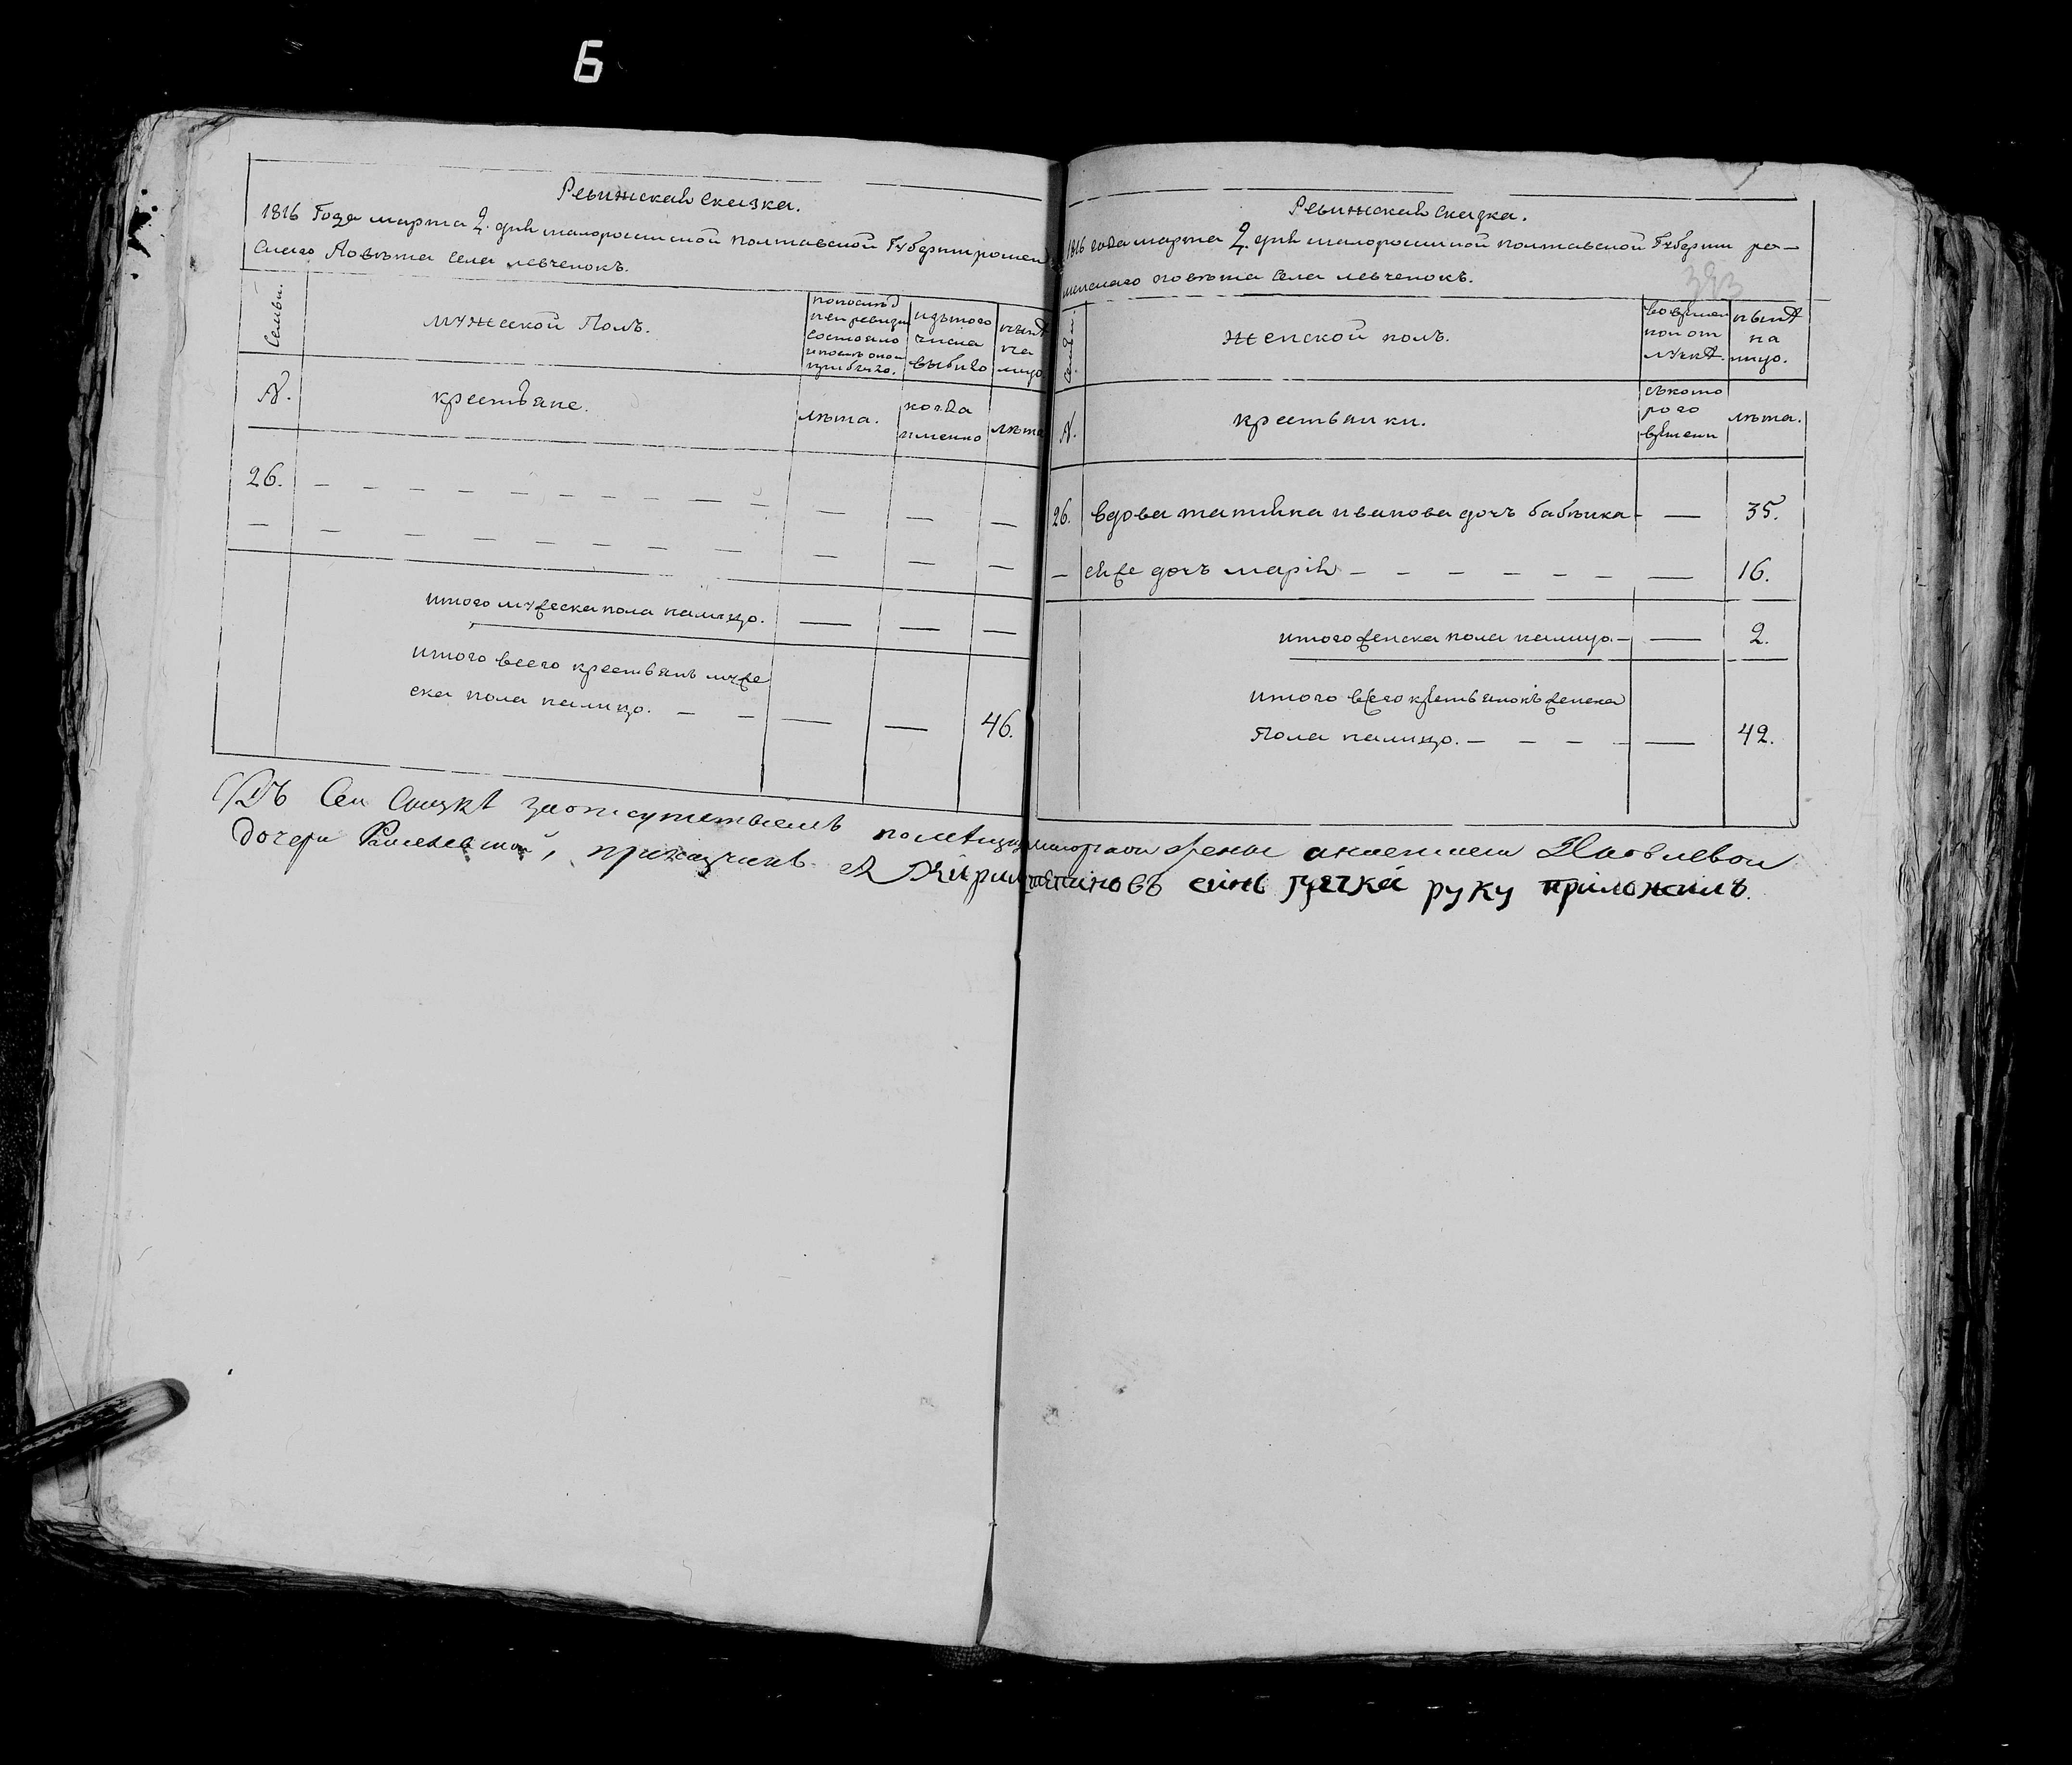 Б
Ревижская сказка.
1816 Года марта 2. дня малоросийской полтавской Губернии ромен
скаго Повѣта села левченокъ.
Семьи.
мужеской Полъ.
изътого
числа
выбыло
ныне
на
лицо
N.
крестьяне.
лѣта.
когда
именно
лѣта
26.
итого мужеска пола налицо.
итого всего крестьянъ муже
ска пола налицо.
46.
Ревижская Сказка.
1816 года марта 2 дня малоросийской полтавской Губернии ро–
менскаго повѣта села левченокъ.
393
женской полъ.
ныне
на
лицо.
N.
крестьянки.
съкото
рого
времени
лѣта.
26. вдова татияна иванова дочъ бабѣика 35.
– еяже дочъ марія 16.
итого женска пола налицо. 2.
итого всего крестьянокъ женска
Пола налицо. 42.
Къ Сей Сказкѣ заотсутствиемъ помещицы маіоршой Яковлевой
дочери приказчикъ руку приложилъ.